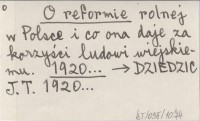 O reformie rolnej
w Polsce i co ona daje za
korzyści ludowi wiejskie-
mu. 1920... → DZIEDZIC
J.T. 1920...